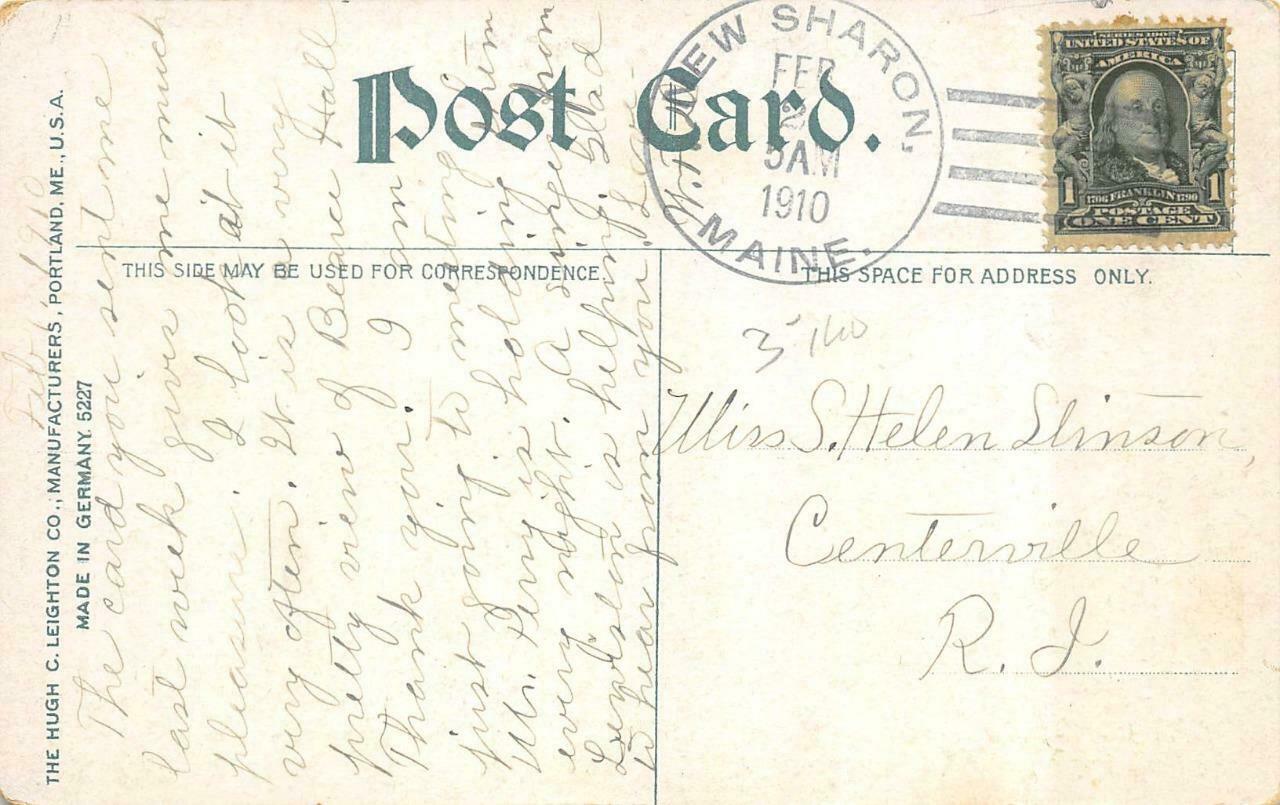 Post Card.
NEW SHARON,
MAINE.
FEB
2
5AM
1910
SERIES 1902
UNITED STATES OF
AMERICA
1706 FRANKLIN 1790
1 1
POSTAGE
ONE CENT
THIS SIDE MAY BE USED FOR CORRESPONDENCE.
THIS SPACE FOR ADDRESS ONLY.
THE HUGH C. LEIGHTON CO., MANUFACTURERS, PORTLAND, ME., U.S.A.
MADE IN GERMANY. 5227
Feb. 1, 1910
The card you sent me
last week gives me much
pleasure. I look at it
very often. It is a very
pretty view of Hall
Thank you. I am
just going to meeting.
Mr. is holding them
every night. A singer from
is helping. Glad
to hear from you.
Miss S. Helen Stinson,
Centerville
R. I.